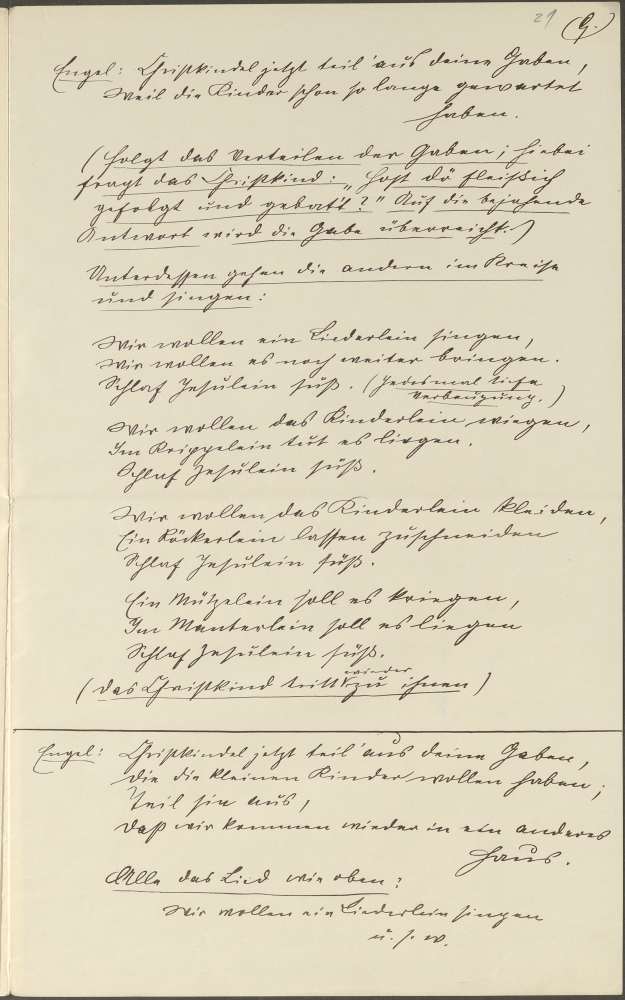 29 (G.)
Engel: Christkindel jetzt teil' aus deine Gaben,
Weil die Kinder schon so lange gewartet
haben.
(Folgt das Verteilen der Gaben; hiebei
fragt das Christkind: „Host dö fleißich
gefolgt und gebatt?" Auf die bejahende
Antwort wird die Gabe überreicht.)
Unterdessen gehen die andern im Kreise
und singen:
Wir wollen ein Liederlein singen,
Wir wollen es noch weiter bringen.
Schlaf Jesulein süß. (Jedesmal tiefe
Verbeugung.)
Wir wollen das Kinderlein wiegen,
Im Krippelein tut es liegen.
Schlaf Jesulein süß.
Wir wollen das Kinderlein kleiden,
Ein Röckerlein lassen zuschneiden
Schlaf Jesulein süß.
Ein Mützelein soll es kriegen,
Im Manterlein soll es liegen
Schlaf Jesulein süß.
(Das Christkind tritt wieder zu ihnen)
Engel: Christkindel jetzt teil' aus deine Gaben,
Die die kleinen Kinder wollen haben;
Teil sie aus,
Daß wir kommen wieder in ein anderes
Haus.
Alle das Lied wie oben:
Wir wollen ein Liederlein singen
u. s. w.